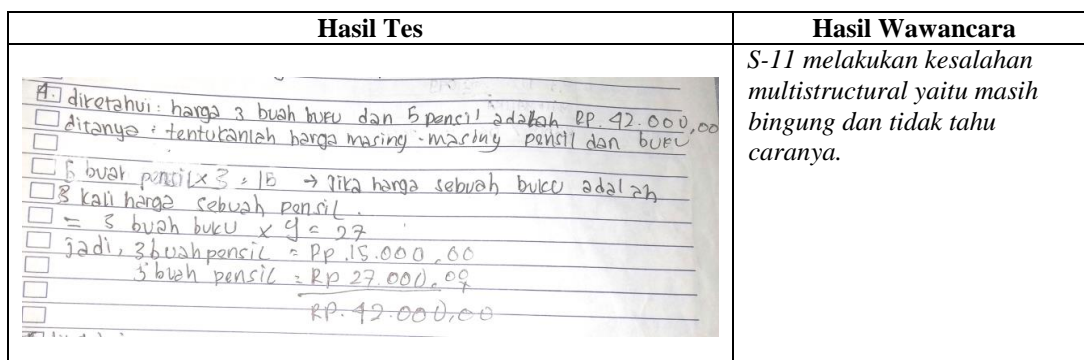 Hasil Tes
Hasil Wawancara
4. diketahui: harga 3 buah buku dan 5 pensil adalah RP. 42.000,00
ditanya : tentukanlah harga masing-masing pensil dan buku
5 buah pensil x 3 = 15 → Jika harga sebuah buku adalah
3 kali harga sebuah pensil.
= 3 buah buku x 9 = 27
jadi, 3 buah pensil = Rp.15.000,00
3 buah pensil = Rp 27.000,00
RP. 42.000,00
S-11 melakukan kesalahan
multistructural yaitu masih
bingung dan tidak tahu
caranya.